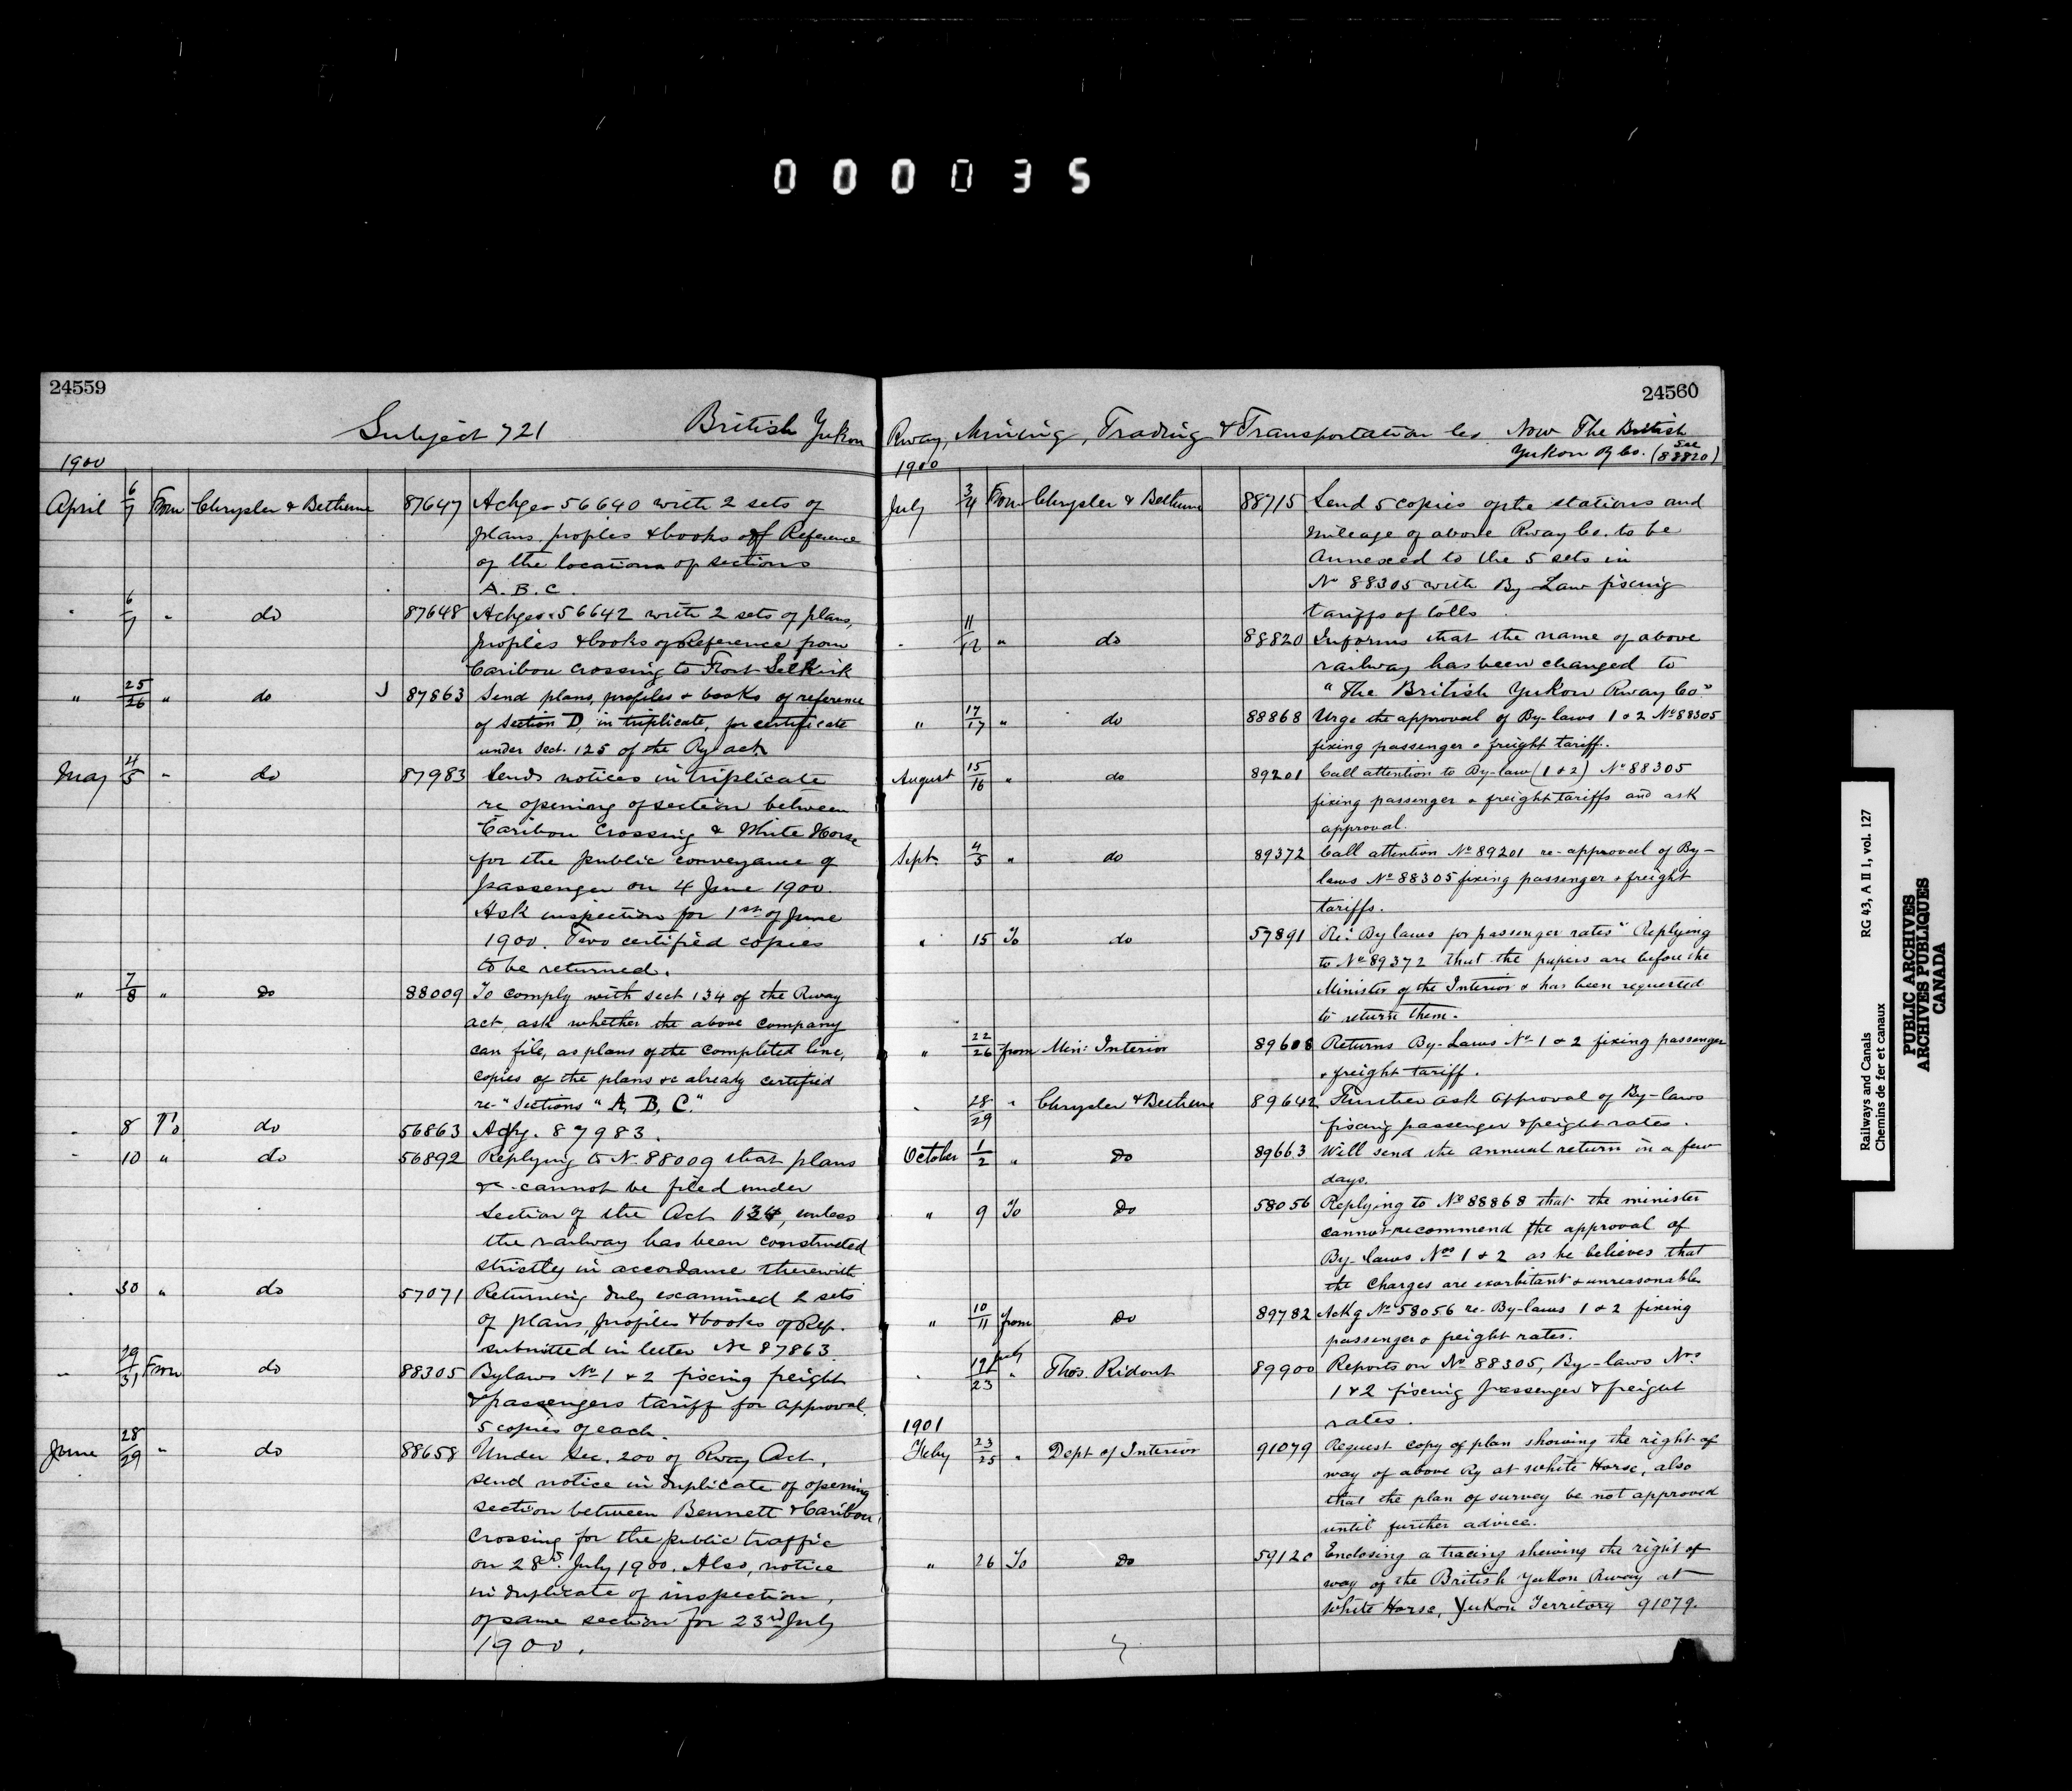 000035
24559
Subject 721 British Yukon
1900
April 6/7 From Chrysler & Bethune 87647 Ackges 56640 with 2 sets of
plans, profiles & books of Reference
of the locations of sections
A. B. C.
" 6/7 " do 87648 Ackges 56642 with 2 sets of plans,
profiles & books of Reference from
Caribou Crossing to Fort Selkirk
" 25/26 " do 87863 Send plans, profiles & books of reference
of Section D, in triplicate, for certificate
under Sect. 125 of the Ry act.
May 4/5 " do 87983 Sends notices in triplicate
re opening of section between
Caribou Crossing & White Horse
for the public conveyance of
passenger on 4 June 1900.
Ask inspection for 1st of June
1900. Two certified copies
to be returned.
" 7/8 " do 88009 To comply with sect 134 of the Rway
act, ask whether the above company
can file, as plans of the completed line,
copies of the plans &c already certified
re "Sections "A, B, C."
" 8 To do 56863 Ackg. 87983.
" 10 " do 56892 Replying to No. 88009 that plans
&c cannot be filed under
Section of the Act 134, unless
the railway has been constructed
strictly in accordance therewith
" 30 " do 57071 Returning duly examined 2 sets
of plans, profiles & books of Ref.
submitted in letter No 87863
" 29/31 From do 88305 Bylaws No 1 & 2 fixing freight
& passengers tariff for approval.
5 copies of each.
June 28/29 " do 88658 Under Sec. 200 of Rway Act,
send notice in duplicate of opening
section between Bennett & Caribou
Crossing for the public traffic
on 28th July 1900. Also, notice
in duplicate of inspection,
of same section for 23rd July
1900.
24560
Rway, Mining, Trading & Transportation Co. Now The British
Yukon Ry Co. (See 88820)
1900
July 3/4 From Chrysler & Bethune 88715 Send 5 copies of the stations and
mileage of above Rway Co. to be
annexed to the 5 sets in
No 88305 with By Law fixing
tariffs of tolls
" 11/12 " do 88820 Informs that the name of above
railway has been changed to
"The British Yukon Rway Co."
" 17/17 " do 88868 Urge the approval of By-laws 1 & 2 No 88305
fixing passenger & freight tariff.
August 15/16 " do 89201 Call attention to By-law (1 & 2) No 88305
fixing passenger & freight tariffs and ask
approval.
Sept. 4/5 " do 89372 Call attention No 89201 re approval of By-
laws No 88305 fixing passenger & freight
tariffs.
" 15 To do 57891 Re: By laws for passenger rates" Replying
to No 89372 that the papers are before the
Minister of the Interior & has been requested
to return them.
" 22/26 from Min: Interior 89608 Returns By-Laws No 1 & 2 fixing passenger
& freight tariff.
" 28/29 " Chrysler & Bethune 89642 Further ask approval of By-laws
fixing passenger & freight rates.
October 1/2 " do 89663 Will send the annual return in a few
days.
" 9 To do 58056 Replying to No 88868 that the minister
cannot recommend the approval of
By-laws Nos 1 & 2 as he believes that
the charges are exorbitant & unreasonable
" 10/11 from do 89782 Ackg No 58056 re By-laws 1 & 2 fixing
passenger & freight rates.
" 19 July/23 " Thos. Ridout 89900 Reports on No 88305, By-laws Nos
1 & 2 fixing passenger & freight
rates.
1901
Feby 23/25 " Dept of Interior 91079 Request copy of plan showing the right of
way of above Ry at White Horse, also
that the plan of survey be not approved
until further advice.
" 26 To do 59120 Enclosing a tracing shewing the right of
way of the British Yukon Rway at
White Horse, Yukon Territory 91079.
Railways and Canals RG 43, A II 1, vol. 127
Chemins de fer et canaux
PUBLIC ARCHIVES
ARCHIVES PUBLIQUES
CANADA